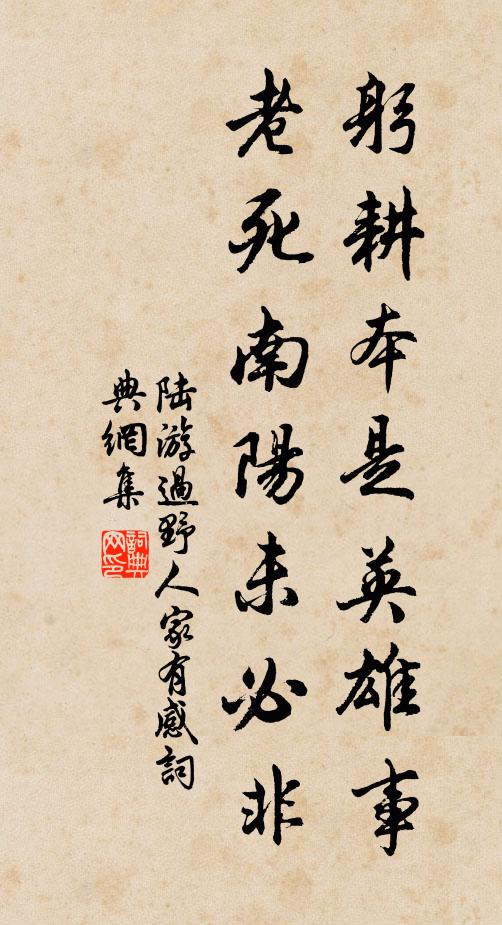 躬耕本是英雄事
老死南陽未必非
陆游過野人家有感詞
典網集
詞典
网印